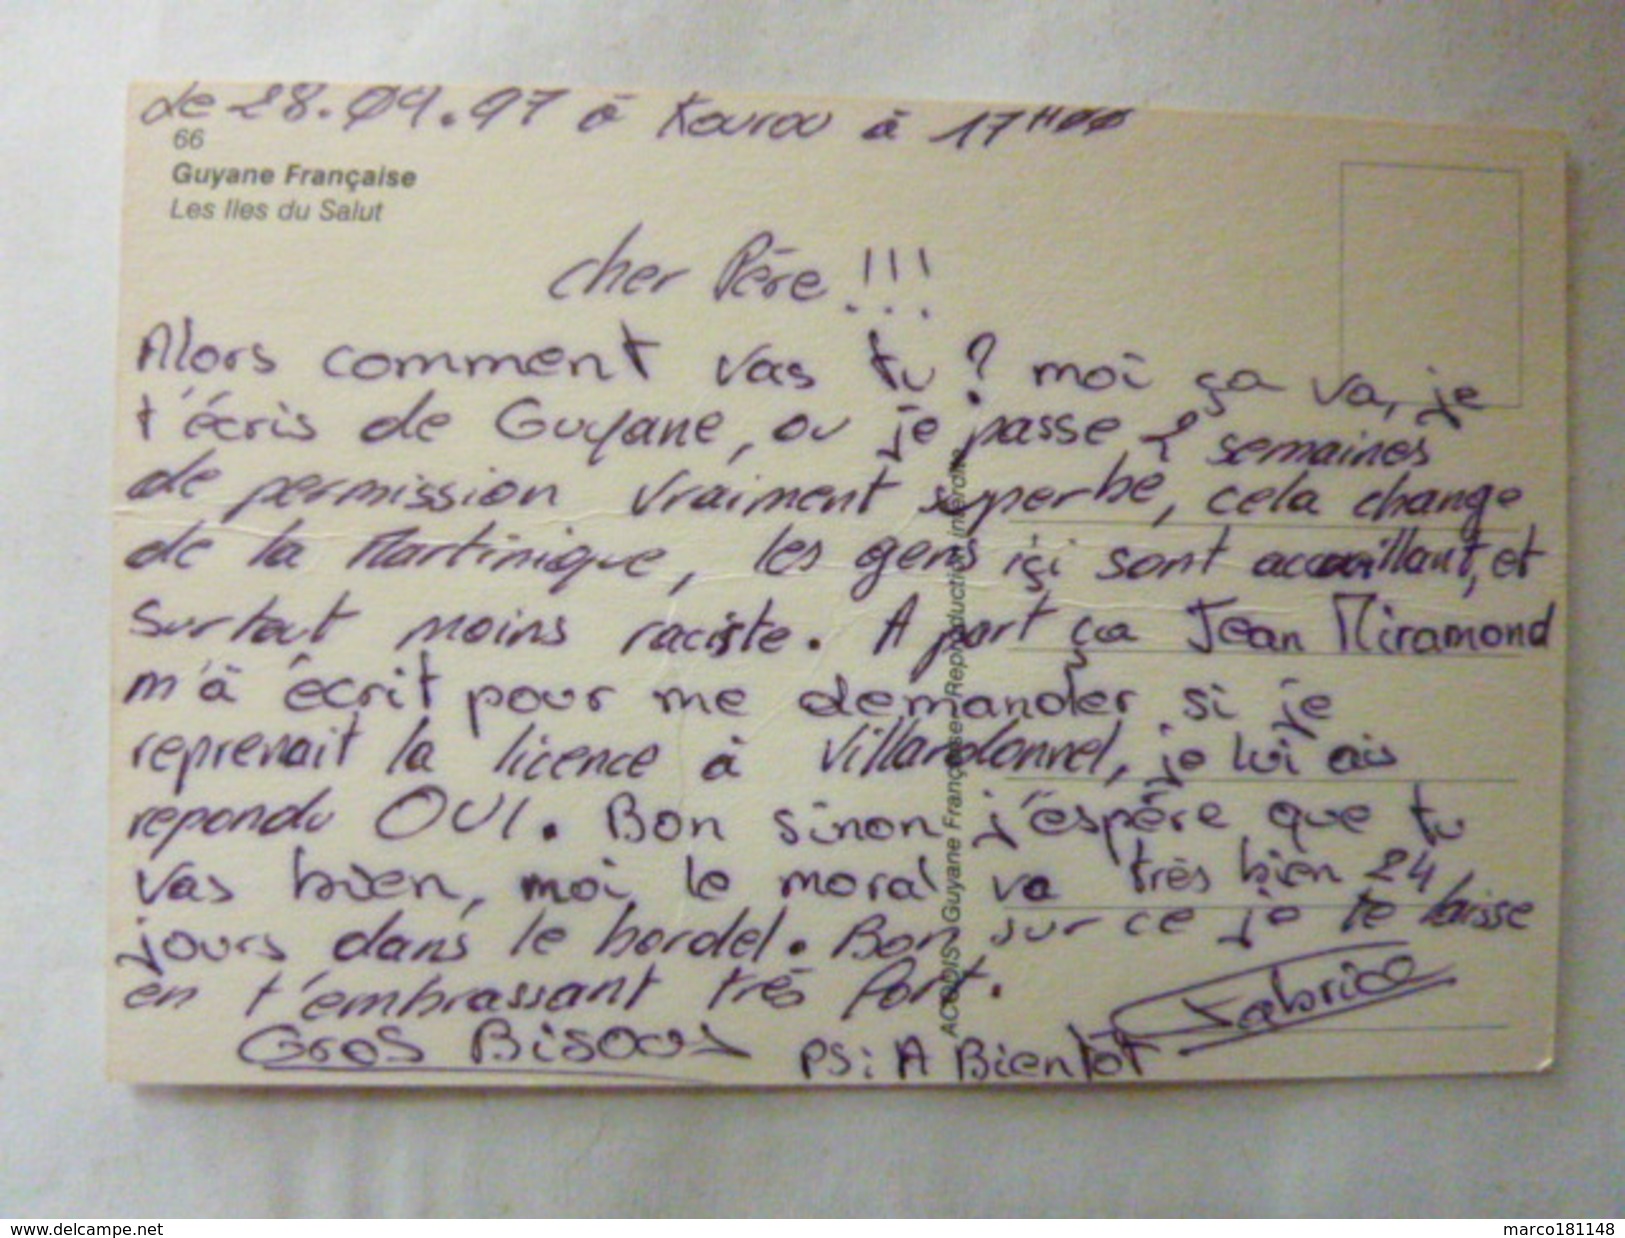 Le 28.04.97 à Kourou à 17H00
66
Guyane Française
Les Iles du Salut
cher Père !!!
Alors comment vas tu ? moi ça va, je
t'écris de Guyane, ou je passe 2 semaines
de permission vraiment superbe, cela change
de la Martinique, les gens içi sont accouillant, et
surtout moins raciste. A part ça Jean Miramond
m'à écrit pour me demander si je
reprenait la licence à Villardonnel, je lui ais
repondu OUI. Bon sinon j'éspère que tu
vas bien, moi le moral va très bien 24
jours dans le bordel. Bon sur ce je te laisse
en t'embrassant très fort.
Fabrice
Gros Bisous PS: A Bientôt
ACODIS Guyane Française Reproduction interdite
www.delcampe.net
marco181148